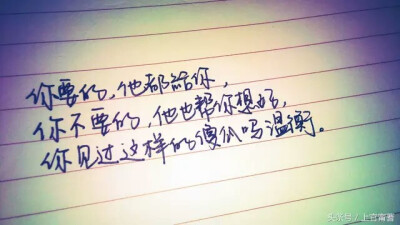 你要的,他都给你,
你不要的,他也帮你想好,
你见过这样的傻瓜吗温衡。
头条号/上官甯蔷